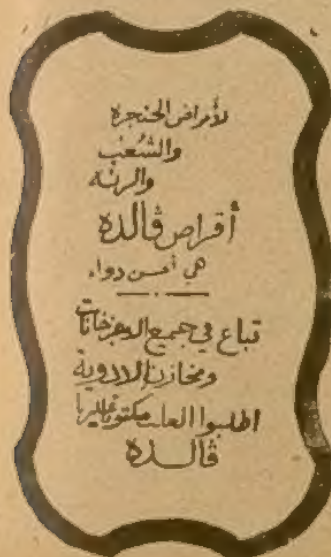 لأمراض الحنجرة
والشعب
والرئة
أقراص ڤالده
هي أحسن دواء
تباع في جميع الاجزخانات
ومخازن الادوية
اطلبوا العلب مكتوبا عليها
ڤالده